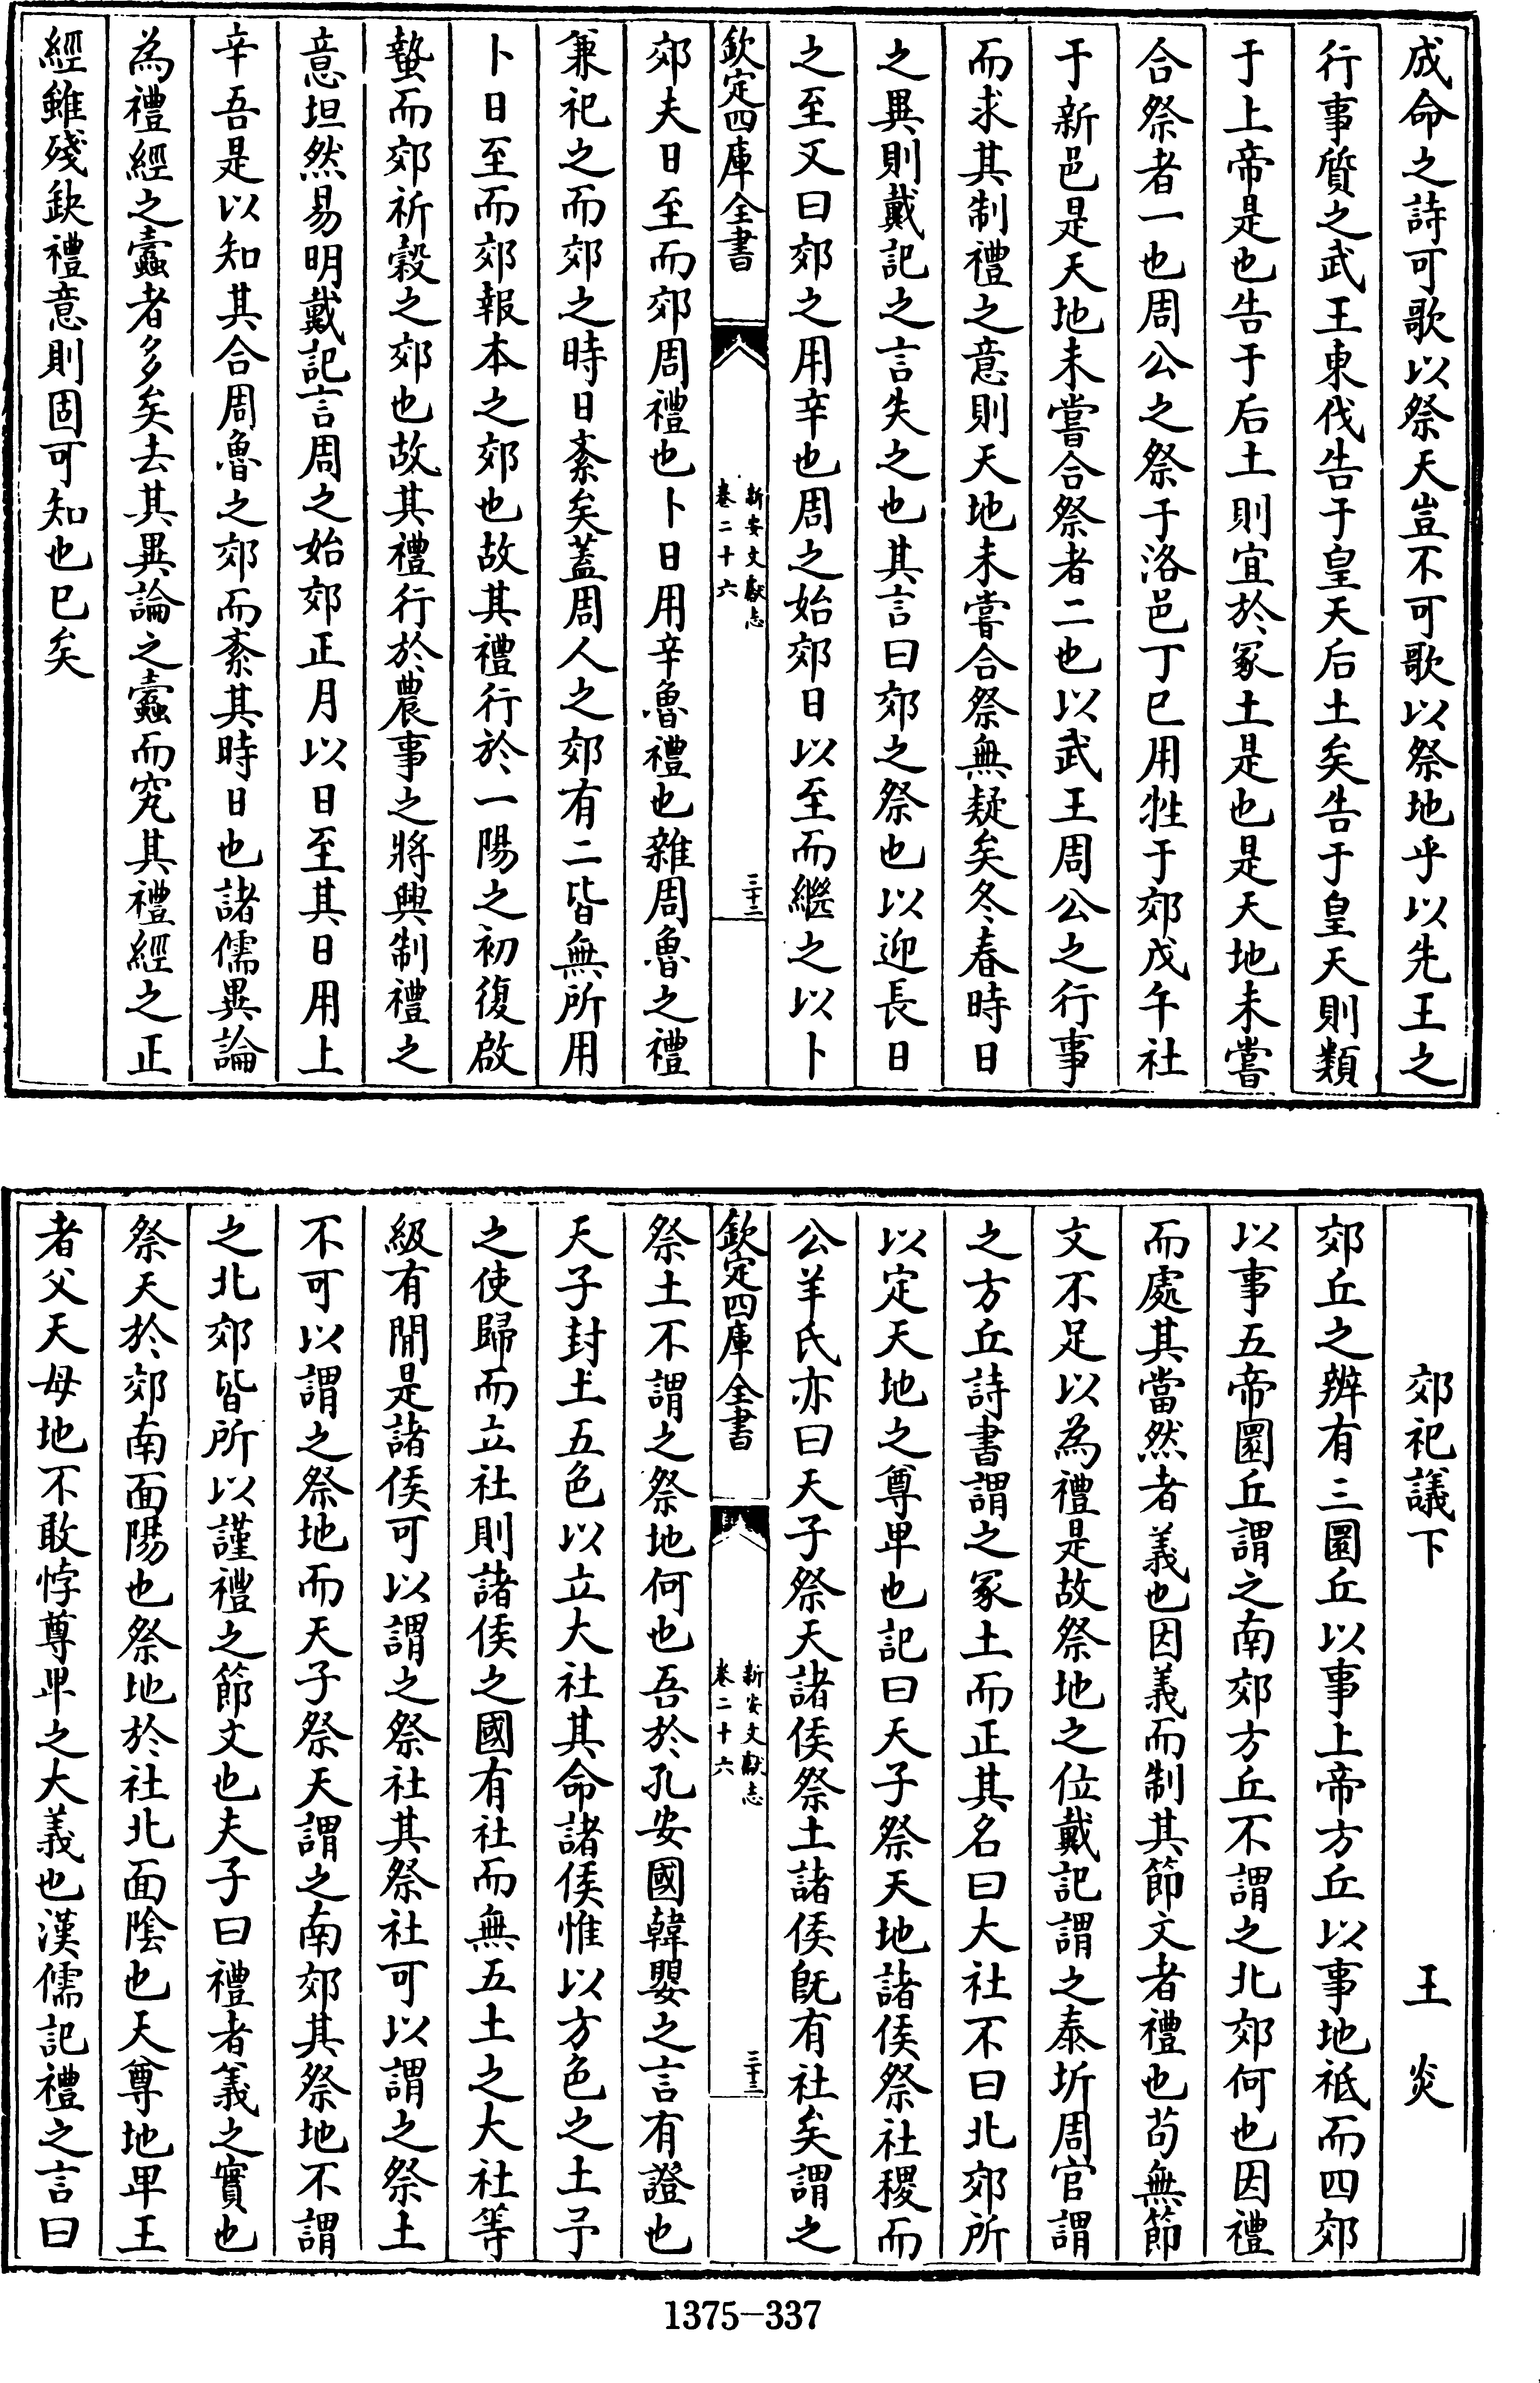 成命之詩可歌以祭天豈不可歌以祭地乎以先王之
行事質之武王東伐告于皇天后土矣告于皇天則類
于上帝是也告于后土則宜於冢土是也是天地未嘗
合祭者一也周公之祭于洛邑丁巳用牲于郊戊午社
于新邑是天地未嘗合祭者二也以武王周公之行事
而求其制禮之意則天地未嘗合祭無疑矣冬春時日
之異則戴記之言失之也其言曰郊之祭也以迎長日
之至又曰郊之用辛也周之始郊日以至而繼之以卜
欽定四庫全書
新安文獻志
卷二十六
三十二
郊夫日至而郊周禮也卜日用辛魯禮也雜周魯之禮
兼祀之而郊之時日紊矣蓋周人之郊有二皆無所用
卜日至而郊報本之郊也故其禮行於一陽之初復啟
蟄而郊祈穀之郊也故其禮行於農事之將興制禮之
意坦然易明戴記言周之始郊正月以日至其日用上
辛吾是以知其合周魯之郊而紊其時日也諸儒異論
為禮經之蠹者多矣去其異論之蠹而究其禮經之正
經雖殘缺禮意則固可知也已矣
郊祀議下 王炎
郊丘之辨有三圜丘以事上帝方丘以事地祗而四郊
以事五帝圜丘謂之南郊方丘不謂之北郊何也因禮
而處其當然者義也因義而制其節文者禮也苟無節
文不足以為禮是故祭地之位戴記謂之泰圻周官謂
之方丘詩書謂之冢土而正其名曰大社不曰北郊所
以定天地之尊卑也記曰天子祭天地諸侯祭社稷而
公羊氏亦曰天子祭天諸侯祭土諸侯旣有社矣謂之
欽定四庫全書
新安文獻志
卷二十六
三十三
祭土不謂之祭地何也吾於孔安國韓嬰之言有證也
天子封土五色以立大社其命諸侯惟以方色之土予
之使歸而立社則諸侯之國有社而無五土之大社等
級有間是諸侯可以謂之祭社其祭社可以謂之祭土
不可以謂之祭地而天子祭天謂之南郊其祭地不謂
之北郊皆所以謹禮之節文也夫子曰禮者義之實也
祭天於郊南面陽也祭地於社北面陰也天尊地卑王
者父天母地不敢悖尊卑之大義也漢儒記禮之言曰
1375-337